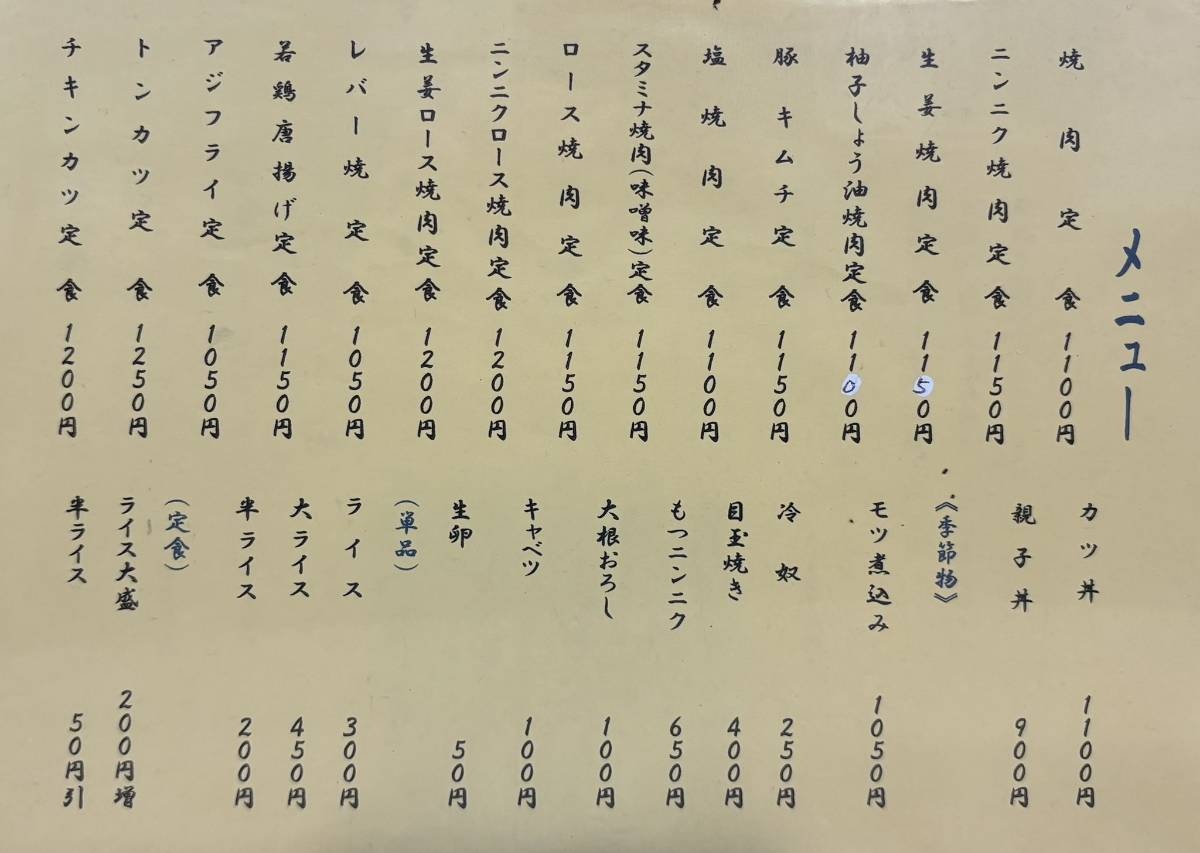 メニュー
焼肉定食 1100円
ニンニク焼肉定食 1150円
生姜焼肉定食 1150円
柚子しょう油焼肉定食 1100円
豚キムチ定食 1150円
塩焼肉定食 1100円
スタミナ焼肉(味噌味)定食 1150円
ロース焼肉定食 1150円
ニンニクロース焼肉定食 1200円
生姜ロース焼肉定食 1200円
レバー焼定食 1050円
若鶏唐揚げ定食 1150円
アジフライ定食 1050円
トンカツ定食 1250円
チキンカツ定食 1200円
カツ丼 1100円
親子丼 900円
《季節物》
モツ煮込み 1050円
冷奴 250円
目玉焼き 400円
もつニンニク 650円
大根おろし 100円
キャベツ 100円
生卵 50円
(単品)
ライス 300円
大ライス 450円
半ライス 200円
(定食)
ライス大盛 200円増
半ライス 50円引